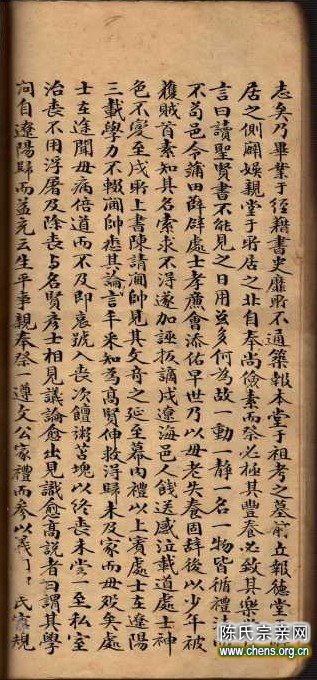 志矣乃畢業于經籍書史靡所不通築報本堂于祖考之墓前立報德堂
居之側闢娛親堂于所居之北自奉尚儉素而祭必極其豐養必致其樂
言曰讀聖賢書不能見之日用益多何為故一動一靜一名一物皆循禮
不苟邑令蒲田薛辟處士孝廣會添佑早世乃以母老失養固辭後以少年被
獲賊首素知其名索求不浔遂加誣扳謫戍遼海邑人餞送感泣載道處士神
色不變至戍所上書陳請閫帥見其文奇之延至幕內禮以上賓處士在遼陽
三載學力不輟閫帥其論言年來知為高賢伸救浔歸未及家而母殁矣處
士在途聞母病倍道而不及即哀號入喪次饘粥苫塊以終喪未嘗一至私室
治喪不用浮屠及除喪与名賢彥士相見議論愈出見識愈高說者曰謂其學
向自遼陽歸而益充云生平事親奉祭一遵文公家禮而參以義门氏家規
陈氏宗亲网
www.chens.org.cn